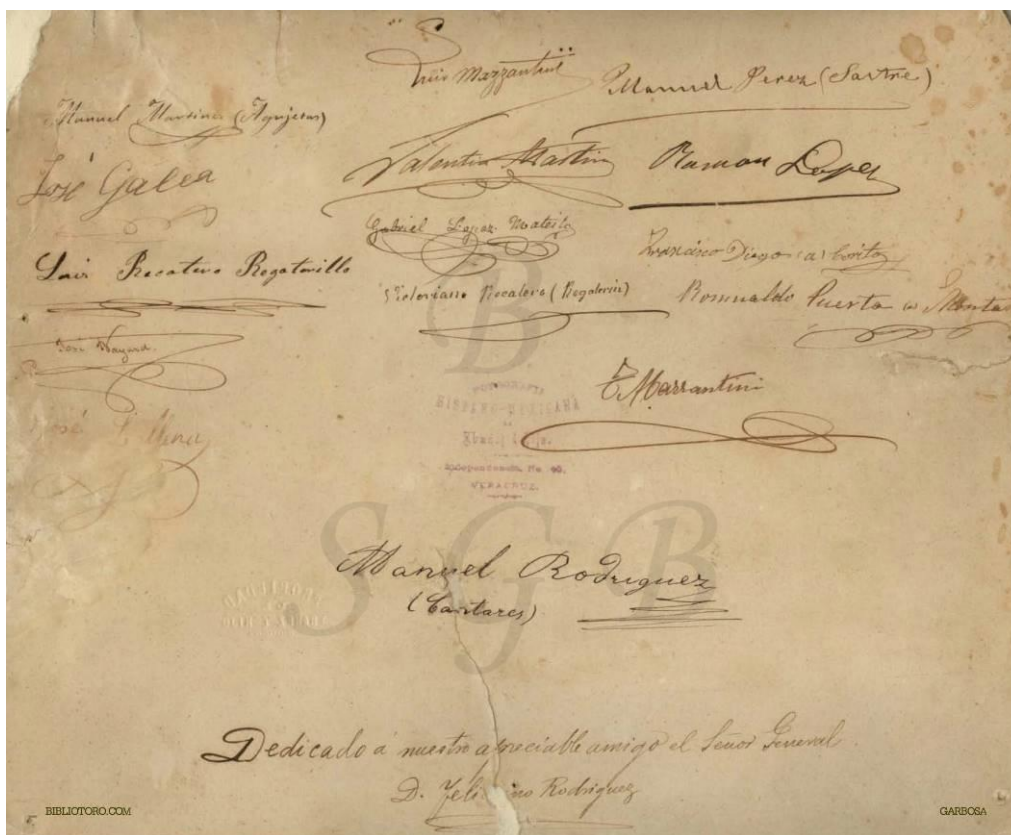 Luis Mazzantini
Manuel Perez (Sastre)
Manuel Martinez (Agujetas)
José Galea
Valentin Martin
Ramon Lopez
Gabriel Lopez Mateito
Francisco Diego (a) Corito
Luis Recatero Regaterillo
Victoriano Recatero (Regaterin)
Romualdo Puerta (a) Monta
José Bayard
T. Mazzantini
FOTOGRAFIA
HISPANO-MEXICANA
DE
Independencia, No
VERACRUZ.
José
Manuel Rodriguez
(Cantares)
B
SGB
Dedicado á nuestro apreciable amigo el Señor General
D. Rodriguez
BIBLIOTORO.COM
GARBOSA